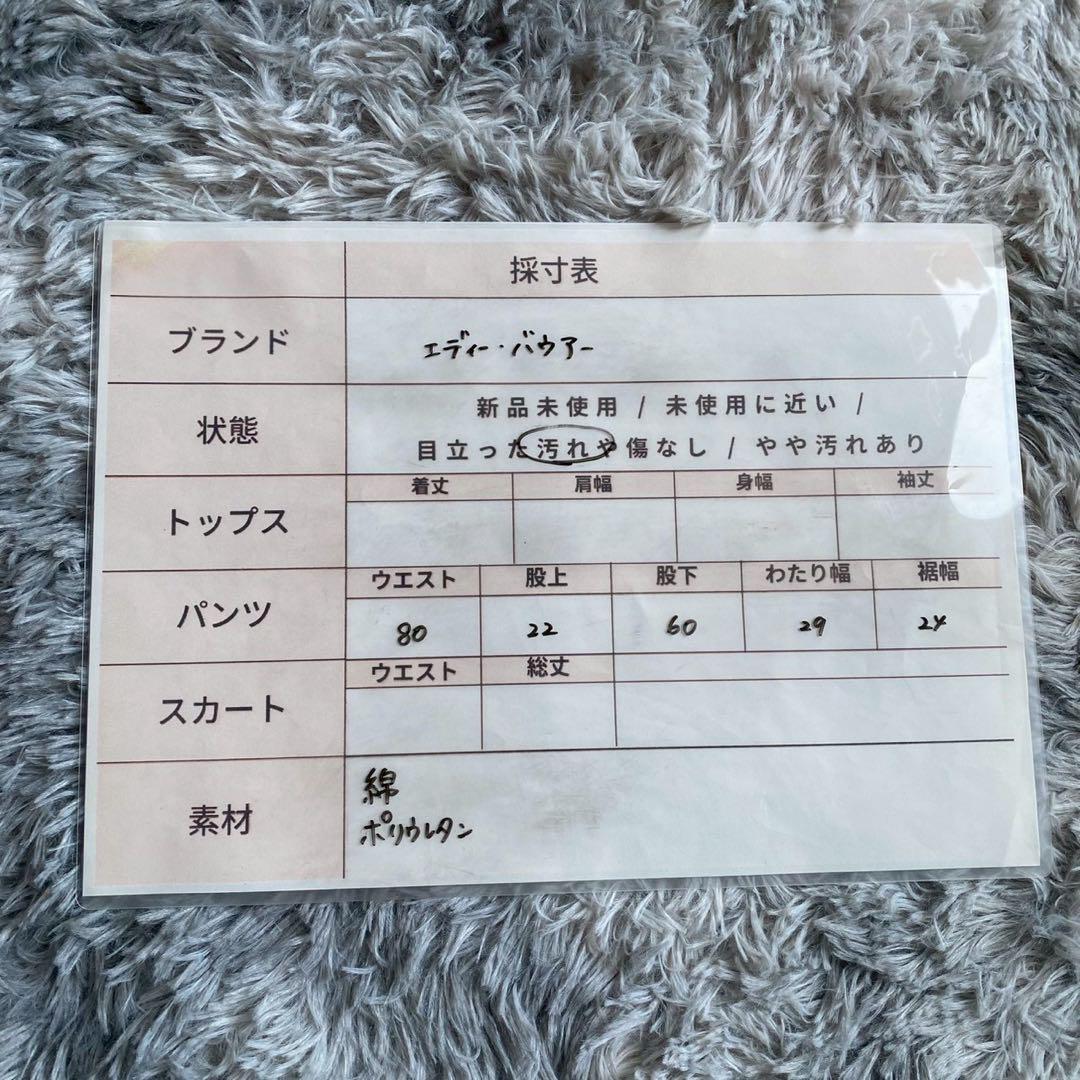 採寸表
ブランド
エディー・バウアー
状態
新品未使用 / 未使用に近い /
目立った汚れや傷なし / やや汚れあり
トップス
着丈 肩幅 身幅 袖丈
パンツ
ウエスト 股上 股下 わたり幅 裾幅
80 22 60 29 24
スカート
ウエスト 総丈
素材
綿
ポリウレタン